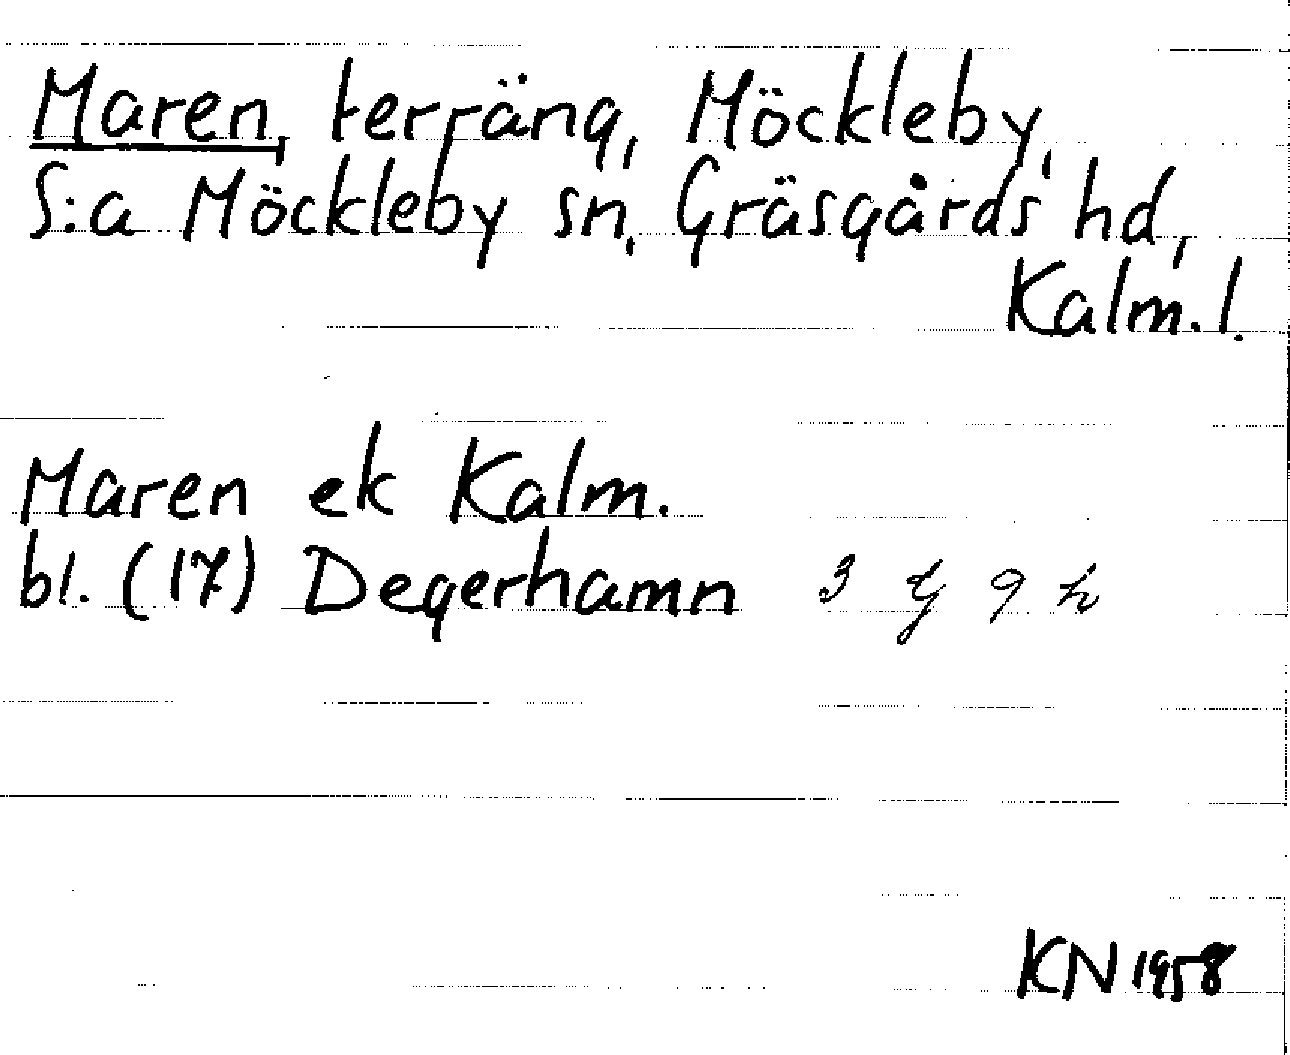 Maren, terräng, Möckleby,
S:a Möckleby sn, Gräsgårds hd,
Kalm. l.
Maren ek Kalm.
bl. (17) Degerhamn 3 G 9 h
KN 1958